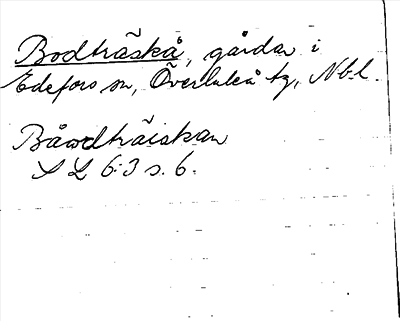 Bodträskå, gårdar i
Edefors sn, Överluleå tg, Nbl.
Båwdträiskan
S L 6:3 s. 6.